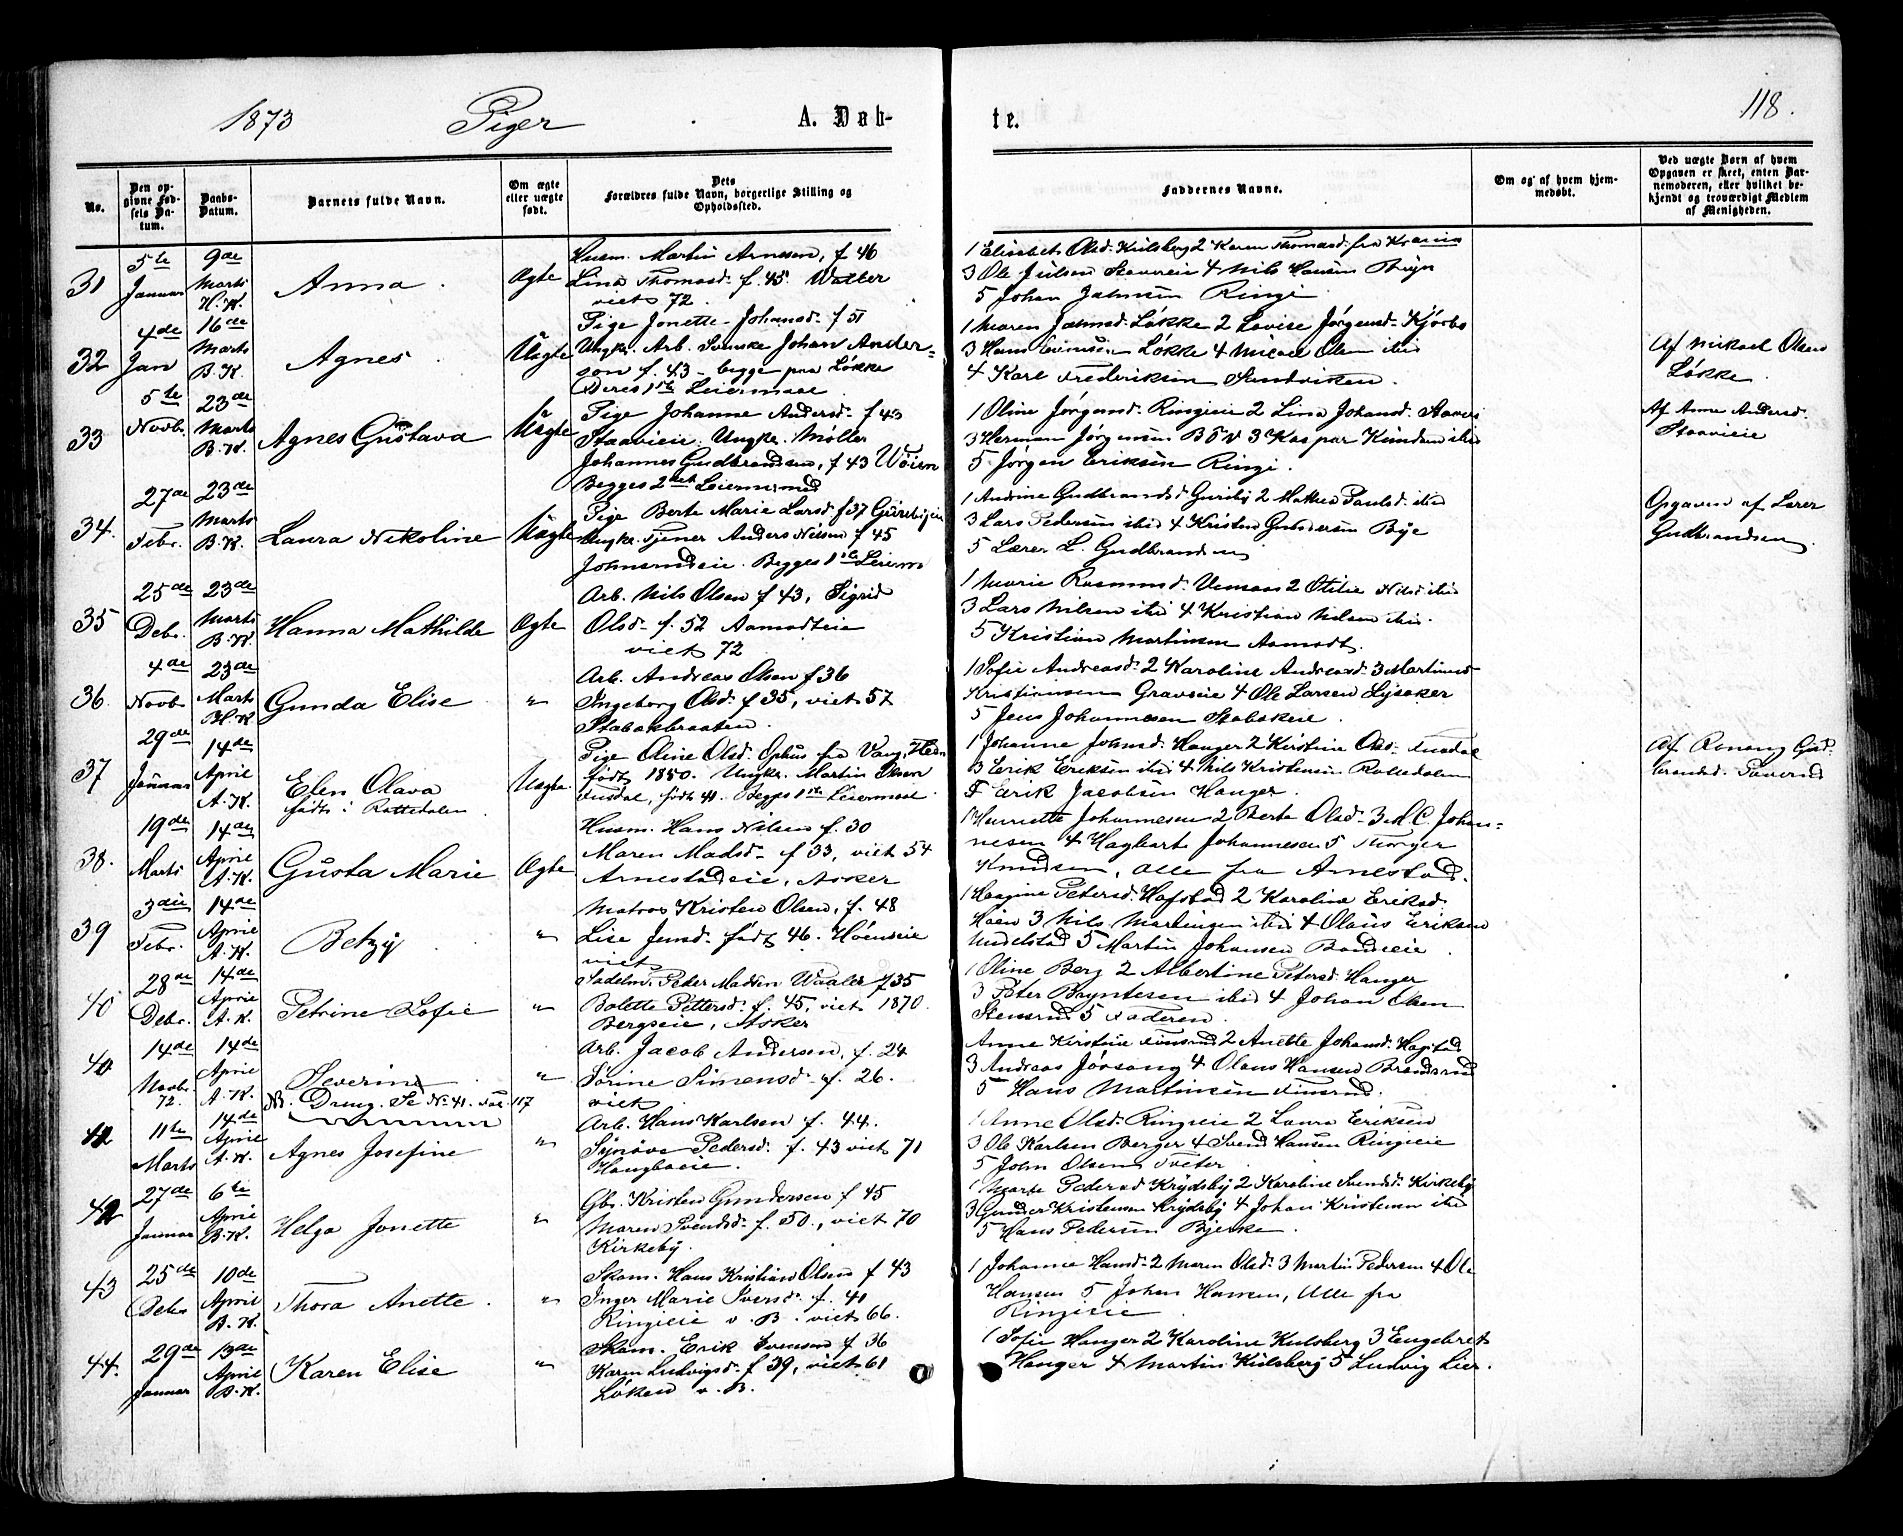 1873 Piger A. Døb-
te. 118.
No.
Den opgivne Fødsels Datum.
Daabs-Datum.
Barnets fulde Navn.
Om ægte eller uægte født.
Dets Forældres fulde Navn, borgerlige Stilling og Opholdssted.
Faddernes Navne.
Om og af hvem hjemmedøbt.
Ved uægte Børn af hvem Opgaven er skeet, enten Barnemoderen, eller hvilket bekjendt og troværdigt Medlem af Menigheden.
31 5te Januar 9de Marts H.K. Anna Ægte
Husm. Martin Arnesen, f 46
Lina Thomasd. f. 45. Walter
viet 72.
1 Elisabet Olsd. Kulsberg 2 Karen Thomasd. fra
3 Ole Julsen 4 Nils Hansen Bryn
5 Johan Jahnsen Ringi
32 4de Jan 16de Marts B.K. Agnes Uægte
Pige Jonette Johansd. f 51
Ungk. Arb. Svenske Johan Ander-
son f. 43 - begge paa Løkke
Deres 1ste Leiermaal
1 Maren Løkke 2 Lovise Jørgensd. Kjørbo
3 Hans Løkke 4 Micael Olsen ibid
4 Karl Frederiksen Sandviken.
Af Mikael Olsen
Løkke
33 5te Novbr. 23de Marts B.K. Agnes Gustava Uægte
Pige Johanne Andersd. f 43
Staavieie. Ungkr. Møller
Johannes Gudbrandsen, f 43 Wøien
Begges 2det Leiermaal
1 Oline Jørgensd. Ringieie 2 Lina Johansd.
3 Herman Jørgensen 3 Kaspar Knudsen ibid
5 Jørgen Eriksen Ringi.
Af Anne Andersd.
Staavieie
34. 27de Febr. 23de Marts B.K. Laura Nikoline Uægte
Pige Berte Marie Larsd. f 37
Ungkr. Tjener Anders Nilsen f 45
Begges 1ste Leierm.
1 Andrine Gudbrandsd 2 Mathea Paulsd. ibid
3 Lars Pedersen ibid 4 Kristen Gundersen Bye
5 Lærer L. Gudbrandsen
Opgaven af Lærer
Gudbrandsen
35 25de Debr. 23de Marts B.K. Hanna Mathilde Ægte
Arb. Nils Olsen f 43, Sigrid
Olsd. f. 52 Aamodteie
viet 72
1 Marie Rasmusd. 2 Otilie Nilsd ibid
3 Lars Nilsen ibid 4 Kristian Nilsen ibid.
5 Kristian Martinsen Aamodt.
36. 4de Novb. 23de Marts H.K Gunda Elise "
Arb. Andreas Olsen f 36
Ingeborg Olsd. f 35, viet 57
Stabækbraaten.
1 Sofie Andreasd. 2 Karoline Andreasd. 3 Martinus
Kristiansen Gravseie 4 Ole Larsen Lysaker
5 Jens Johannesen
37 29de Januar 14de April A.K. Elen Olava Uægte
født i Rottedalen
Pige Oline Olsd. Ophus fra Vang, Hedm
født 1850. Ungkr. Martin Olsen
født 41. Begges 1ste Leiermaal
1 Johanne Johnsd. Hanger 2 Kirstine Olsd.
3 Erik Eriksen ibid 4 Nils Kristensen Rottedalen
5 Erik Jacobsen Hanger.
38. 19de Marts 14de April A.K. Gusta Marie Ægte
Husm. Hans Nilsen f. 30
Maren Madsd. f 33, viet 54
Arnestadeie, Asker
1 Henriette Johannesen 2 Berte Olsd. 3 M.C. Johan-
nesen 4 Hagbart Johannesen 5 Torger
Knudsen, alle fra Arnestad.
39 3die Febr. 14de April A.K. Betzy "
Matros Kristen Olsen, f. 48
Lise Jensd. født 46. Høenseie
viet
1 Petersd. Hofstad 2 Karoline Eriksd.
Høen 3 Nils Martinsen ibid 4 Olaus Eriksen
Undelstad 5 Martin Johansen
40 28de Debr. 14de April A.K. Petrine Lofie "
Sadelm. Peter Madsen Waaler f 35
Bolette Pettersd. f. 45, viet 1870.
Bergseie, Asker
1 Oline Berg 2 Albertine Petersd. Hanger
3 Peter Bryntesen ibid 4 Johan Olsen
Stensrud 5 Faderen.
40 14de Novbr. 72. 14de April A.K. Severine "
NB. Dreng. Se No 41. Fol. 117
Arb. Jacob Andersen, f. 24
Sørine Simensd. f. 26.
viet
Anne Kirstine 2 Anette Johansd. Hogstad
3 Andreas 4 Olaus Hansen
5 Hans Martinsen
41 11te Marts 14de April A.K. Agnes Josefine "
Arb. Hans Karlsen f. 44.
Synøve Pedersd. f. 43 viet 71
Haugboeie.
1 Anne Olsd. Ringieie 2 Laura Eriksen
3 Ole Karlsen Berger 4 Svend Hansen Ringieie
5 John Olsen Tveter
42 27de Januar 6te April B.K. Helga Jonette "
Gbr. Kristen Gundersen f 45
Maren Svendsd. f. 50., viet 70
Kirkeby.
1 Marte Pedersd Krydsby 2 Karoline Svendsd. Kirkeby
3 Gunder Kristensen Krydsby 4 Johan Kristensen ibid
5 Hans Pedersen Bjerke.
43 25de Debr 10de April B.K. Thora Anette. "
Skom. Hans Kristian Olsen f 43
Inger Marie Iversd. f. 41
Ringieie v. B. viet 66.
1 Johanne Hansd. 2 Maren Olsd. 3 Martin Pedersen 4 Ole
Hansen 5 Johan Hansen, Alle fra
Ringieie
44. 29de Januar 13de April B.K. Karen Elise "
Skom. Erik Svensen f 36
Karen Ludvigsd. f 39, viet 61
Løken v. B.
1 Sofie Hanger 2 Karoline Kulsberg 3 Engebret
Hanger 4 Martin Kulsberg 5 Ludvig Lier.